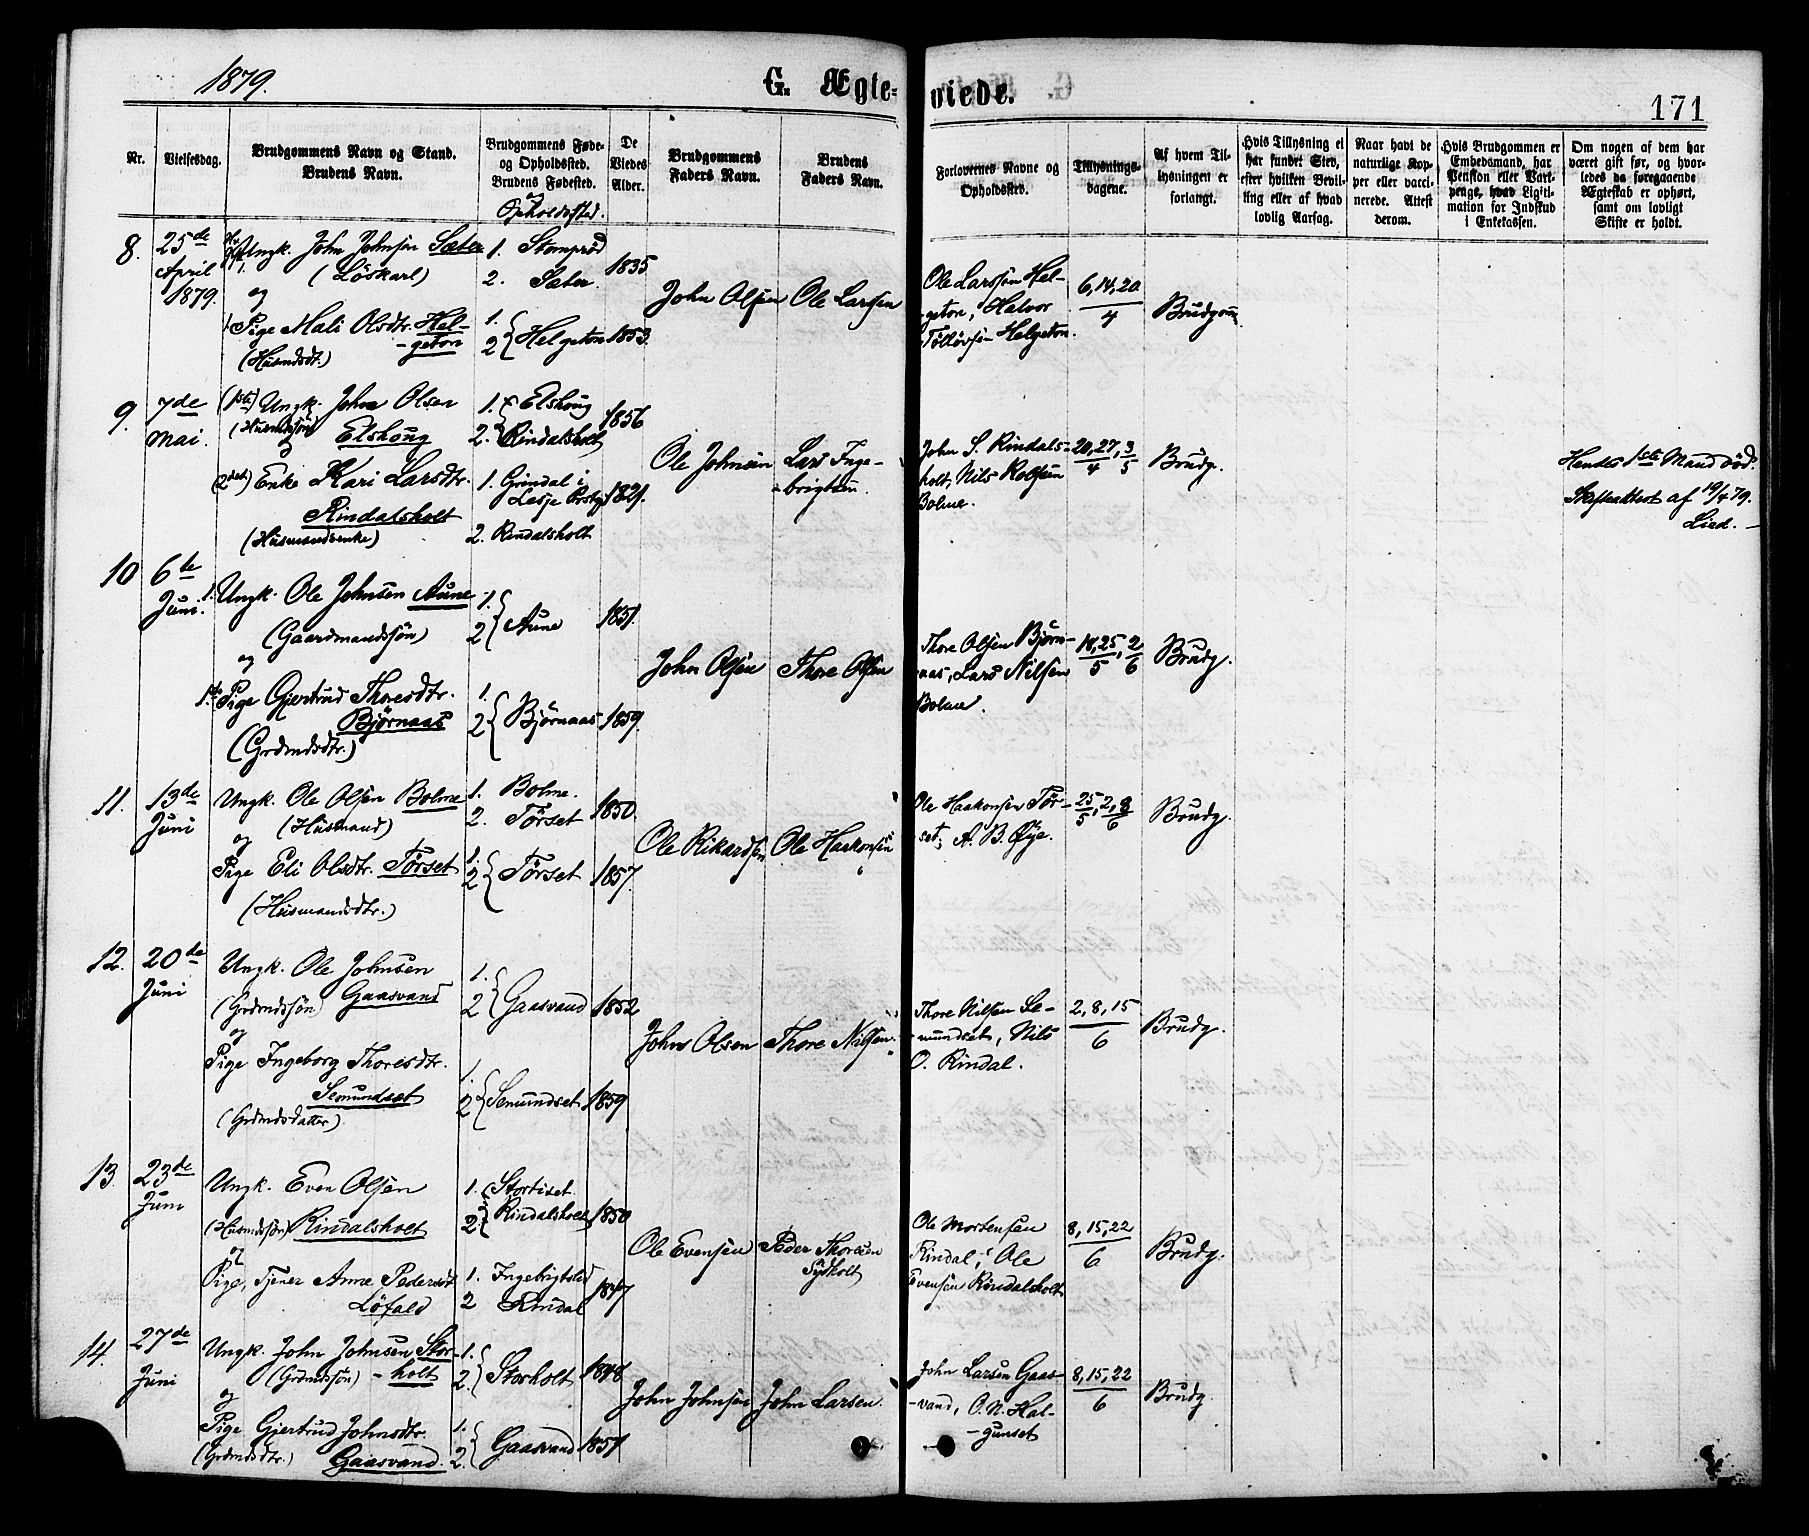 1879.
G. Ægte-
viede.
171
Nr.
Vielsesdag.
Brudgommens Navn og Stand.
Brudens Navn.
Brudgommens Føde-
og Opholdssted.
Brudens Fødested.
og
Opholdssted.
De
Viedes
Alder.
Brudgommens
Faders Navn.
Brudens
Faders Navn.
Forlovernes Navne og
Opholdssted.
Tillysnings-
dagene.
Af hvem Til-
lysningen er
forlangt.
Hvis Tillysning ei
har fundet Sted,
efter hvilken Bevil-
ling eller af hvad
lovlig Aarsag.
Naar havt de
naturlige Kop-
per eller vacci-
nerede. Attest
derom.
Hvis Brudgommen er
Embedsmand, har
Pension eller Vart-
penge, hvad Ligiti-
mation for Indskud
i Enkekassen.
Om nogen af dem har
været gift før, og hvor-
ledes da foregaaende
Ægteskab er ophørt,
samt om lovligt
Skifte er holdt.
8.
25de
April
1879.
Ungk. John Johnsen Sæter
(Löskarl)
og
Pige Mali Olsdtr. Hel-
-geton
(Husmdsdt.)
1. Stomprød
2. Sæter.
1.
2 Helgeton
1835.
1853.
John Olsen
Ole Larsen
Ole Larssen Hel-
-geton, Halvor
Tølløvsen Helgeton.
6, 14, 20
4
Brudgom.
9.
7de
Mai.
(1ste) Ungk. John Olsen
(Husmdssøn) Elshoug
(2det) Enke Kari Larsdtr.
Rindalsholt
(Husmandsenke)
1. Elshoug
2. Rindalsholt
1. Grindal i
Lesje Prstg.
2. Rindalsholt
1856
1821.
Ole Johnsen
Lars Inge-
-brigtsen.
John S. Rindals-
holt, Nils Rolfsen
Bolme.
20, 27, 3
4 5
Brudg.
Hendes 1ste Mand död.
Skifteattest af 19/4 79.
Lied. -
10
6te
Juni.
1. Ungk. Ole Johnsen Aune
(Gaardmandssøn)
og
1ste Pige Gjertrud Thoresdtr.
Bjørnaas
(Grdmdsdtr.)
1.
2 Aune
1.
2 Bjørnaas
1851.
1859.
John Olsen
Thore Olsen
Thore Olsen Bjørn-
-aas, Lars Nilsen
Bolme.
18, 25, 2
5 6
Brudg.
11.
13de
Juni
Ungk. Ole Olsen Bolme
(Husmand)
og
Pige Eli Olsdtr. Tørset
(Husmandsdtr.)
1. Bolme.
2. Tørset
1.
2 Tørset
1850.
1857.
Ole Rikardsen
Ole Haakonsen
Ole Haakonsen Tør-
set, A. B. Øye.
25, 2, 8
5 6
Brudg.
12.
20de
Juni
Ungk. Ole Johnsen
(Grdmdssøn) Gaasvand
og
Pige Ingeborg Thoresdtr.
Semundset
(Grdmdsdatter)
1.
2 Gaasvand
1.
2 Semundset
1852
1859
John Olsen
Thore Nilsen.
Thore Nilsen Se-
-mundset, Nils
O. Rindal.
2, 8, 15
6
Brudg.
13.
23de
Juni
Ungk. Even Olsen
(Husmdssøn) Rindalsholt
og
Pige, Tjener Anne Pedersdt.
Löfald
1. Stortiset.
2. Rindalsholt
1. Ingebrigtsled
2 Rindal
1850
1847
Ole Evensen
Peder Thoresen
Sydholt
Ole Mortensen
Rindal, Ole
Evensen Rindalsholt
8, 15, 22
6
Brudg.
14.
27de
Juni
Ungk. John Johnsen Stor-
(Grdmdssøn) -holt
og
Pige Gjertrud Johnsdtr.
(Grdmdsdtr.) Gaasvand.
1.
2. Storholt
1.
2. Gaasvand
1848
1857
John Johnsen
John Larsen.
John Larsen Gaas-
-vand, O. N. Hal-
-gunset
8, 15, 22
6
Brudg.